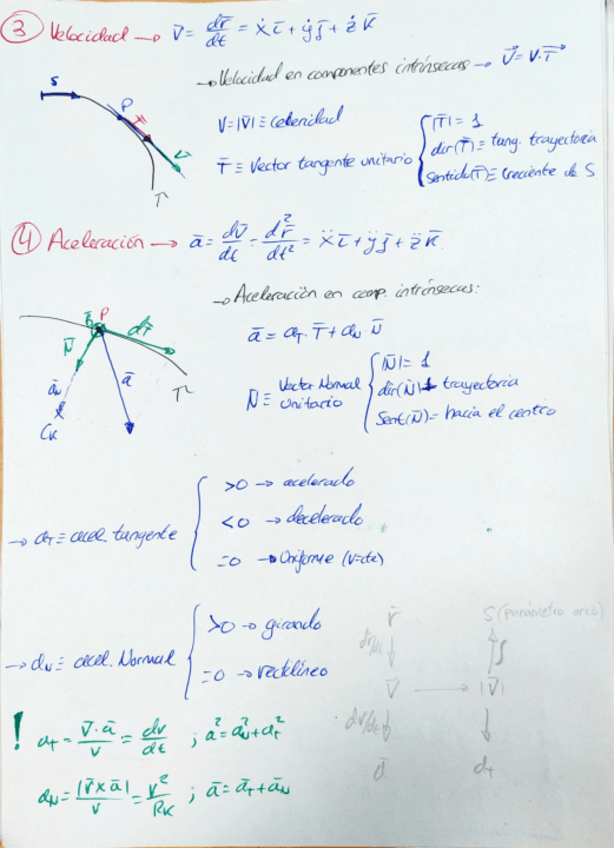 ③ Velocidad → v̄ = dr̄/dt = ẋ ī + ẏ j̄ + ż k̄
→ Velocidad en componentes intrínsecas → v̄ = v · T̄
S
P
T̄
v̄
Γ
v = |v̄| ≡ celeridad
T̄ ≡ Vector tangente unitario { |T̄| = 1
dir(T̄) ≡ tang. trayectoria
Sentido(T̄) ≡ Creciente de S
④ Aceleración → ā = dv̄/dt = d²r̄/dt² = ẍ ī + ÿ j̄ + z̈ k̄
→ Aceleración en comp. intrínsecas:
ā = a_T · T̄ + a_N · N̄
B̄ P
N̄
ā
Γ
ā_N
C_K
N̄ ≡ Vector Normal unitario { |N̄| = 1
dir(N̄) ⊥ trayectoria
Sent(N̄) = hacia el centro
→ a_T ≡ acel. tangente { >0 → acelerado
<0 → decelerado
=0 → Uniforme (v=cte)
→ a_N ≡ acel. Normal { >0 → girando
=0 → rectilíneo
r̄ S (parámetro arco)
dr/dt ∫
v̄ → |v̄|
dv/dt
ā a_T
! a_T = v̄·ā/v = dv/dt ; a² = a_N² + a_T²
a_N = |v̄ x ā|/v = v²/R_K ; ā = ā_T + ā_N